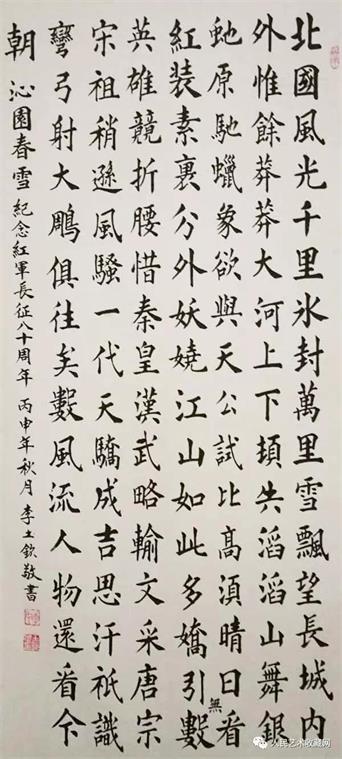 北國風光千里氷封萬里雪飄望長城内
外惟餘莽莽大河上下頓失滔滔山舞銀
虵原馳蠟象欲與天公試比髙須晴日看
紅裝素裹分外妖嬈江山如此多嬌引無數
英雄競折腰惜秦皇漢武略輸文采唐宗
宋祖稍遜風騷一代天驕成吉思汗祇識
彎弓射大鵰俱往矣數風流人物還看今
朝 沁園春雪 紀念紅軍長征八十周年 丙申年秋月 李士欽敬書
人民艺术收藏网